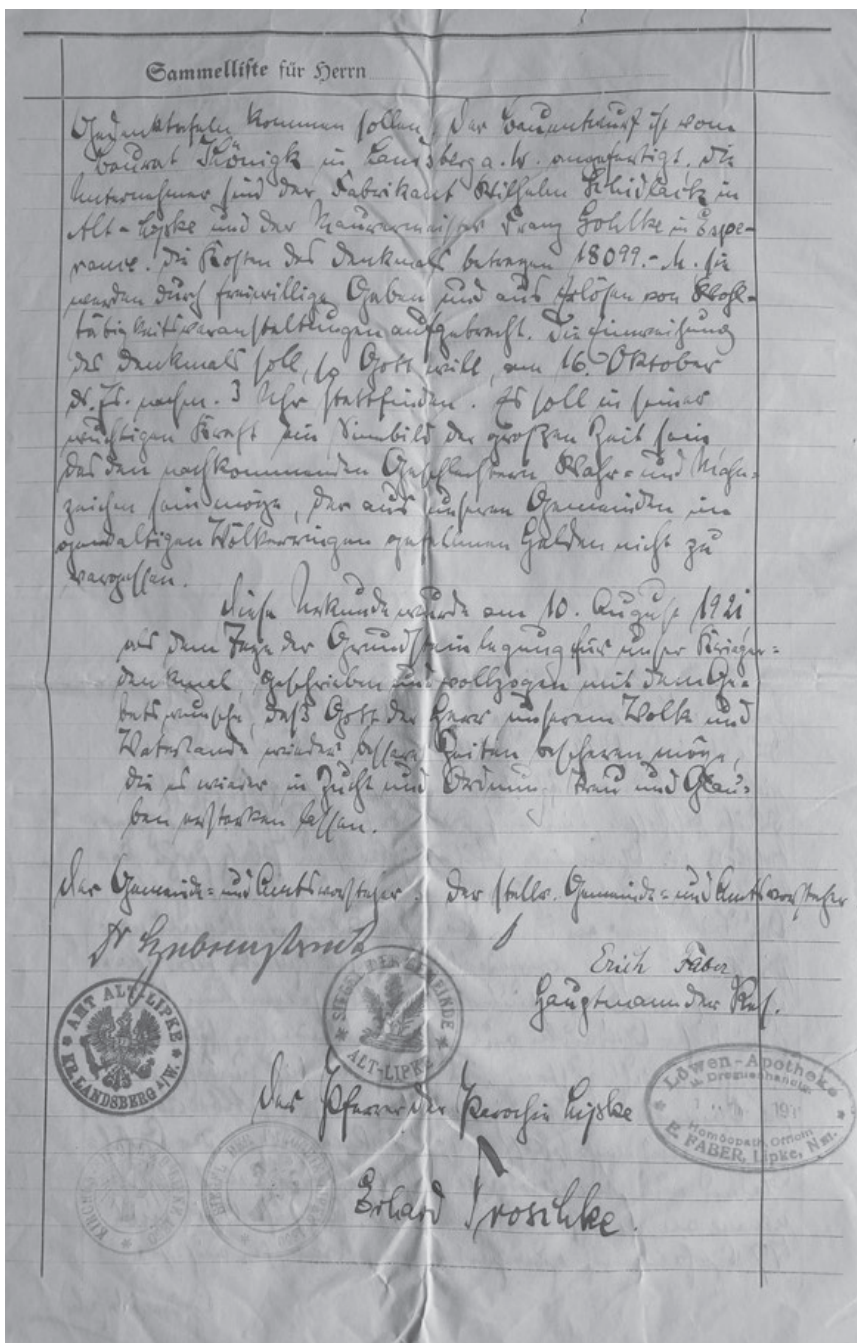 Sammelliste für Herrn
Gedenktafeln kommen sollen, der Bauentwurf ist vom
Baurat Könігk in Landsberg a. W. angefertigt, die
Unternehmer sind der Fabrikant Wilhelm Schidlack in
Alt-Lipke und der Maurermeister Franz Gohlke in Espe-
rance. Die Kosten des Denkmals betragen 18099.- M. sie
werden durch freiwillige Gaben und aus Erlösen von Wohl-
tätigkeitsveranstaltungen aufgebracht. Die Einweihung
des Denkmals soll, so Gott will, am 16. Oktober
ds. Js. nachm. 3 Uhr stattfinden. Es soll in seiner
wuchtigen Kraft ein Sinnbild der großen Zeit sein
das den nachkommenden Geschlechtern Wahr- und Mahn-
zeichen sein möge, der aus unseren Gemeinden im
gewaltigen Völkerringen gefallenen Helden nicht zu
vergessen.
Diese Urkunde wurde am 10. August 1921
als dem Tage der Grundsteinlegung für unser Krieger-
denkmal, geschrieben und vollzogen mit dem Ge-
betswunsche, daß Gott der Herr unserem Volk und
Vaterlande wieder bessere Zeiten bescheren möge,
die es wieder in Zucht und Ordnung Treu und Glau-
ben erstarken lassen.
Der Gemeinde- und Amtsvorsteher. Der stellv. Gemeinde- und Amtsvorsteher
Dr
Erich Faber
Hauptmann der Res.
AMT ALT-LIPKE
KR. LANDSBERG a/W.
SIEGEL DER GEMEINDE
ALT-LIPKE
Der Pfarrer der Parochie Lipke
Löwen-Apotheke
u. Drogenhandlg.
Homöopath. Offizin
E. FABER, Lipke, Nm.
Erhard Troschke.